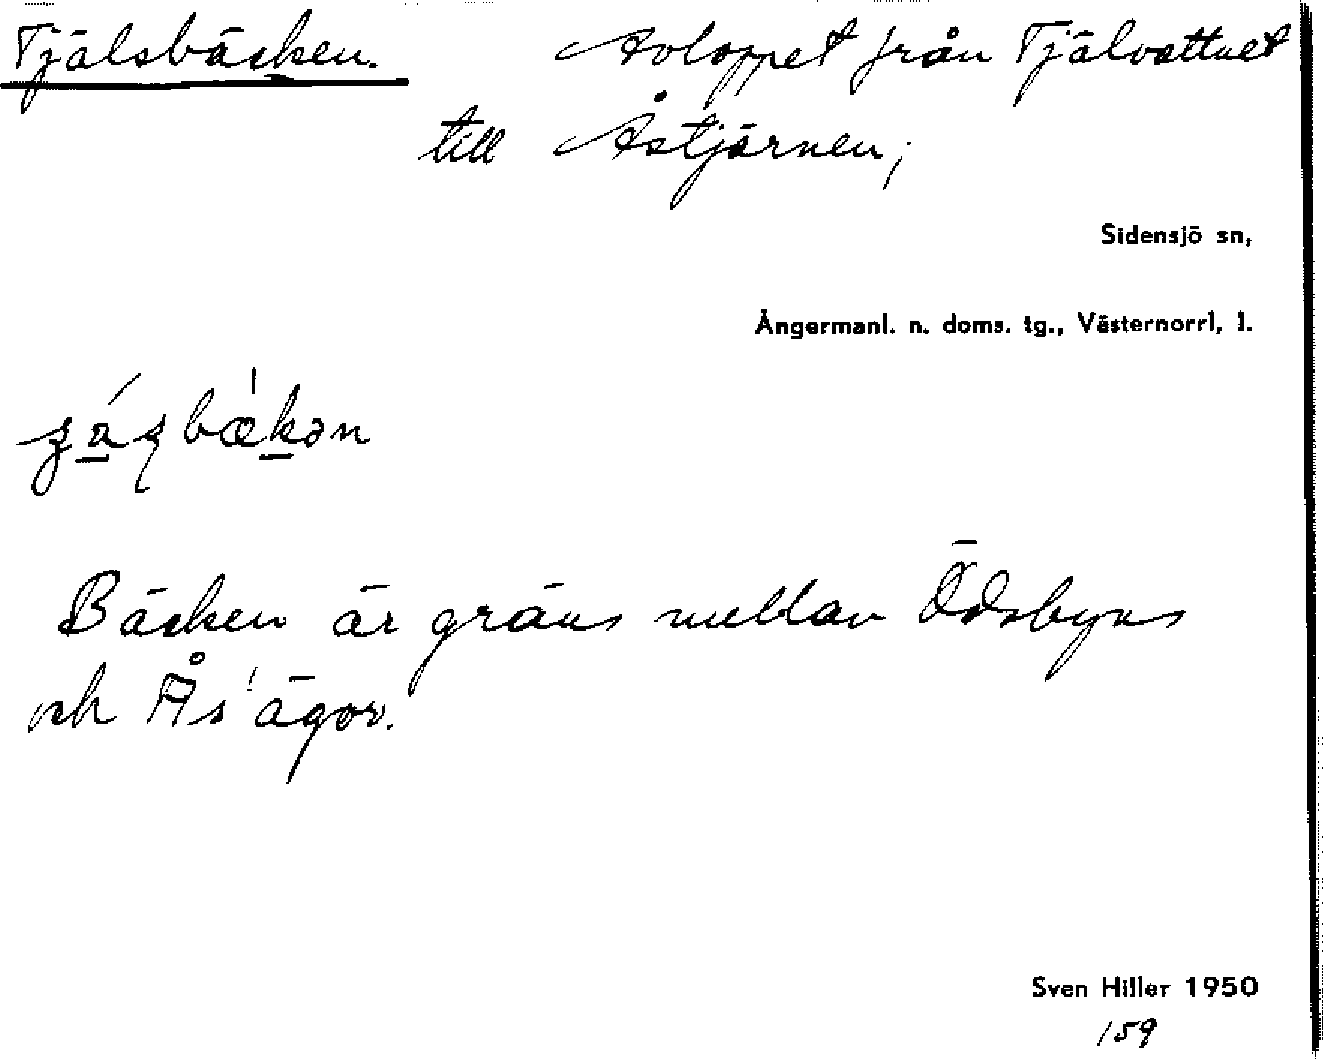 Tjälsbäcken. Avloppet från Tjälvattnet
till Åstjärnen;
Sidensjö sn,
Ångermanl. n. doms. tg., Västernorrl, l.
Bäcken är gräns mellan Ödsbyns
och Ås' ägor.
Sven Hiller 1950
159